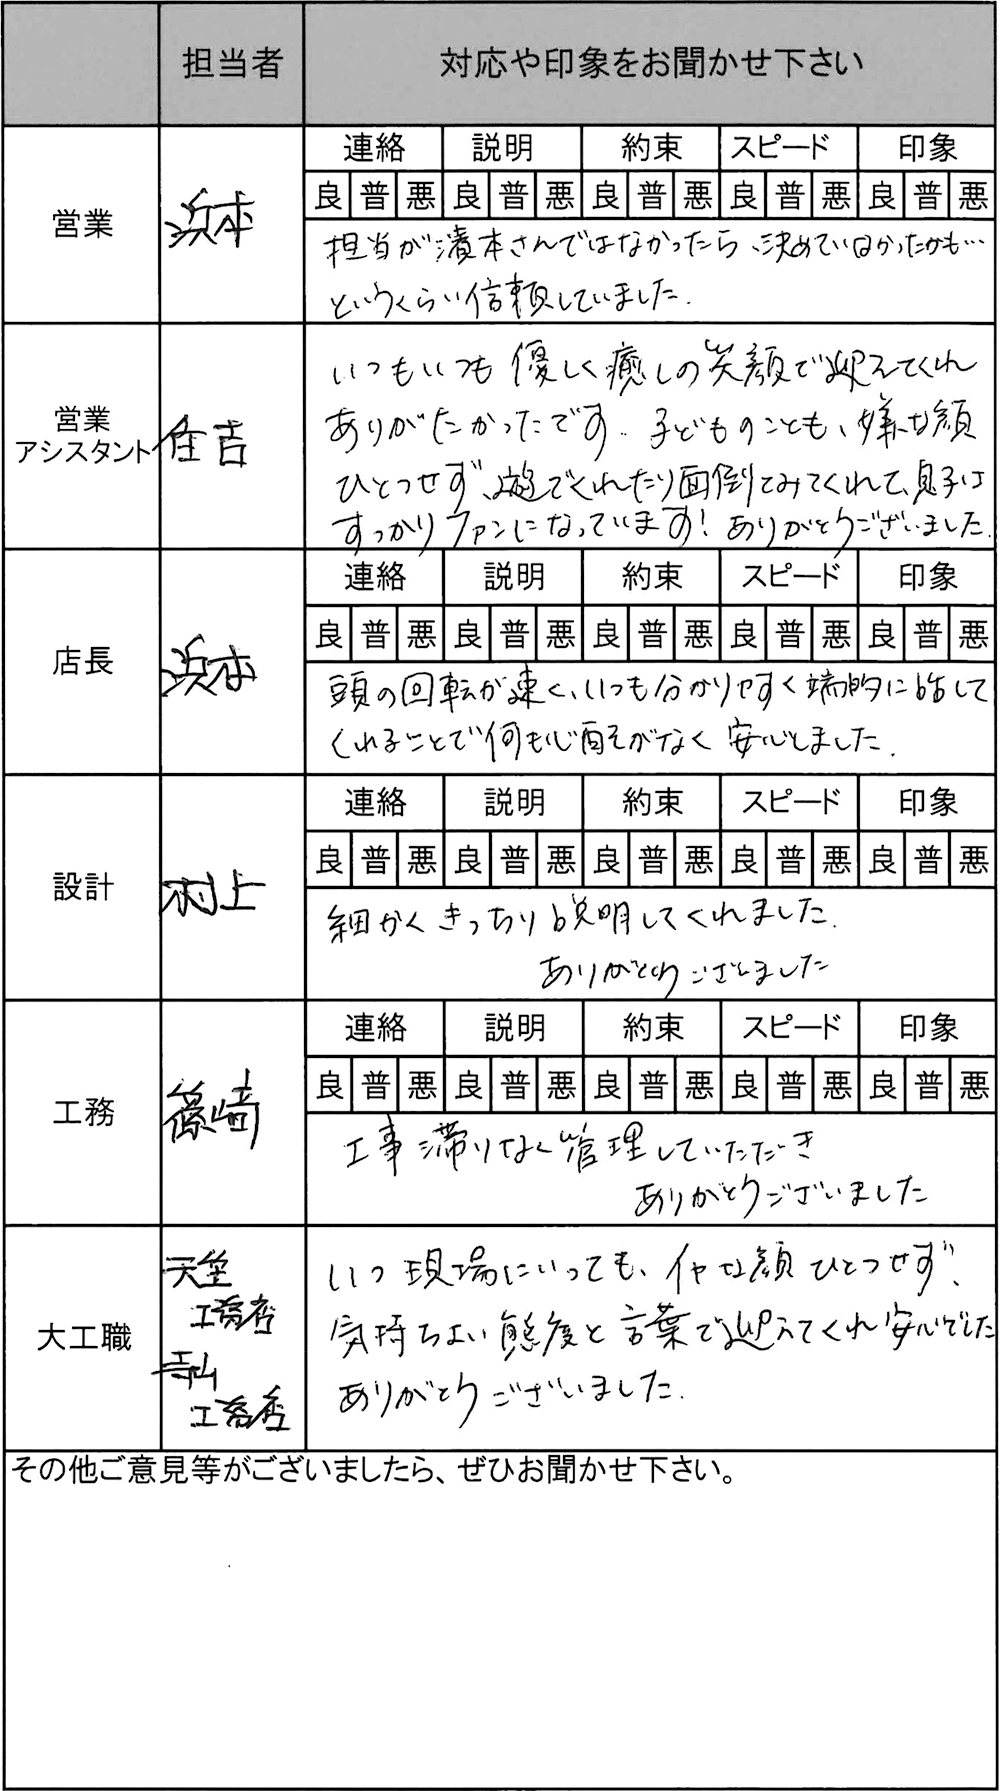 担当者 対応や印象をお聞かせ下さい
営業 浜本
連絡 説明 約束 スピード 印象
良 普 悪 良 普 悪 良 普 悪 良 普 悪 良 普 悪
担当が濱本さんではなかったら、決めていなかったかも…
というくらい信頼していました.
営業
アシスタント 住吉
いつもいつも優しく癒しの笑顔で迎えてくれ
ありがたかったです. 子どものことも、嫌な顔
ひとつせず、遊でくれたり面倒てみてくれて、息子は
すっかりファンになっています! ありがとうございました.
店長 浜本
連絡 説明 約束 スピード 印象
良 普 悪 良 普 悪 良 普 悪 良 普 悪 良 普 悪
頭の回転が速く、いつも分かりやすく端的に話して
くれることで何も心配もがなく安心しました.
設計 村上
連絡 説明 約束 スピード 印象
良 普 悪 良 普 悪 良 普 悪 良 普 悪 良 普 悪
細かくきっちり説明してくれました.
ありがとうございました
工務 篠崎
連絡 説明 約束 スピード 印象
良 普 悪 良 普 悪 良 普 悪 良 普 悪 良 普 悪
工事滞りなく管理していただき
ありがとうございました
大工職
天埜
工務店
寺山
工務店
いつ現場にいっても、イヤな顔ひとつせず、
気持ちよい態度と言葉で迎えてくれ安心でした
ありがとうございました.
その他ご意見等がございましたら、ぜひお聞かせ下さい。